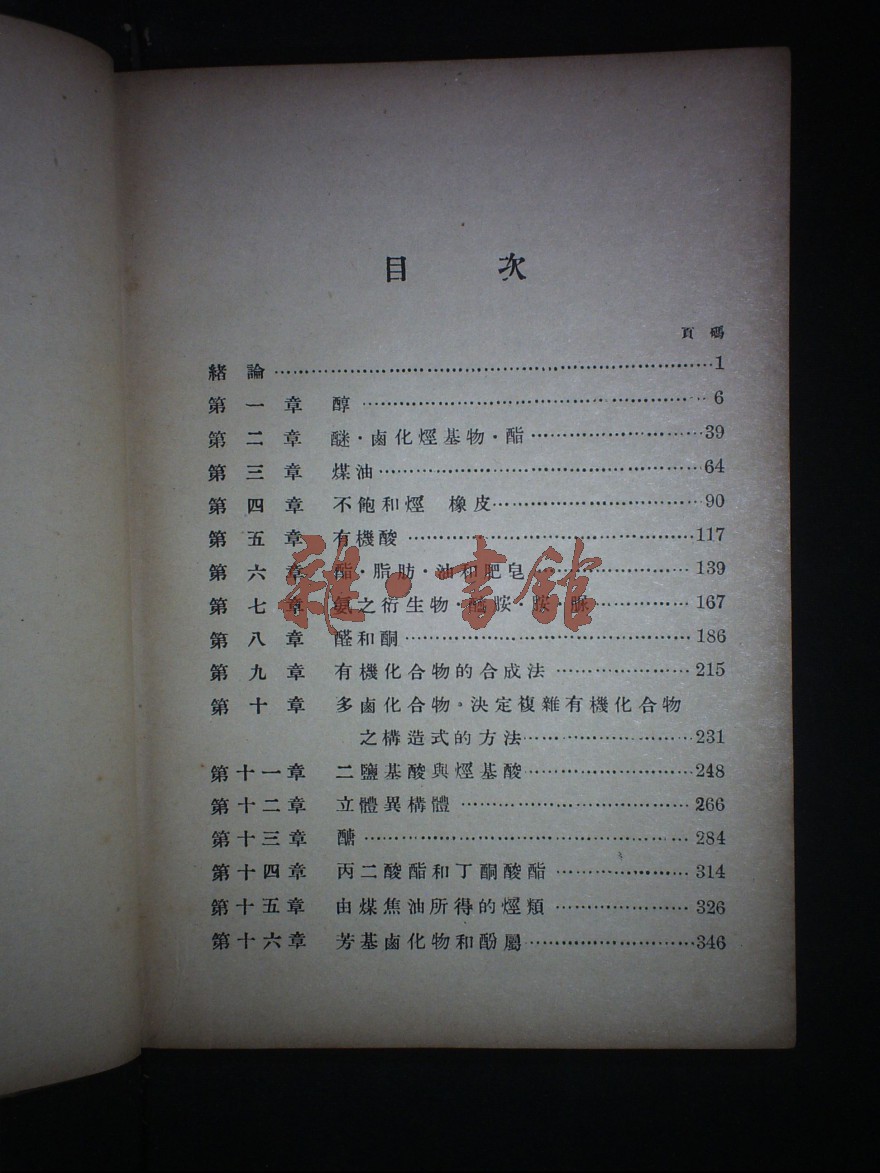 目次
頁碼
緒論……1
第一章 醇……6
第二章 醚·鹵化烴基物·酯……39
第三章 煤油……64
第四章 不飽和烴 橡皮……90
第五章 有機酸……117
第六章 酯·脂肪·油和肥皂……139
第七章 氨之衍生物·醯胺·胺·脲……167
第八章 醛和酮……186
第九章 有機化合物的合成法……215
第十章 多鹵化合物。決定複雜有機化合物
之構造式的方法……231
第十一章 二鹽基酸與烴基酸……248
第十二章 立體異構體……266
第十三章 醣……284
第十四章 丙二酸酯和丁酮酸酯……314
第十五章 由煤焦油所得的烴類……326
第十六章 芳基鹵化物和酚屬……346
雜·書館